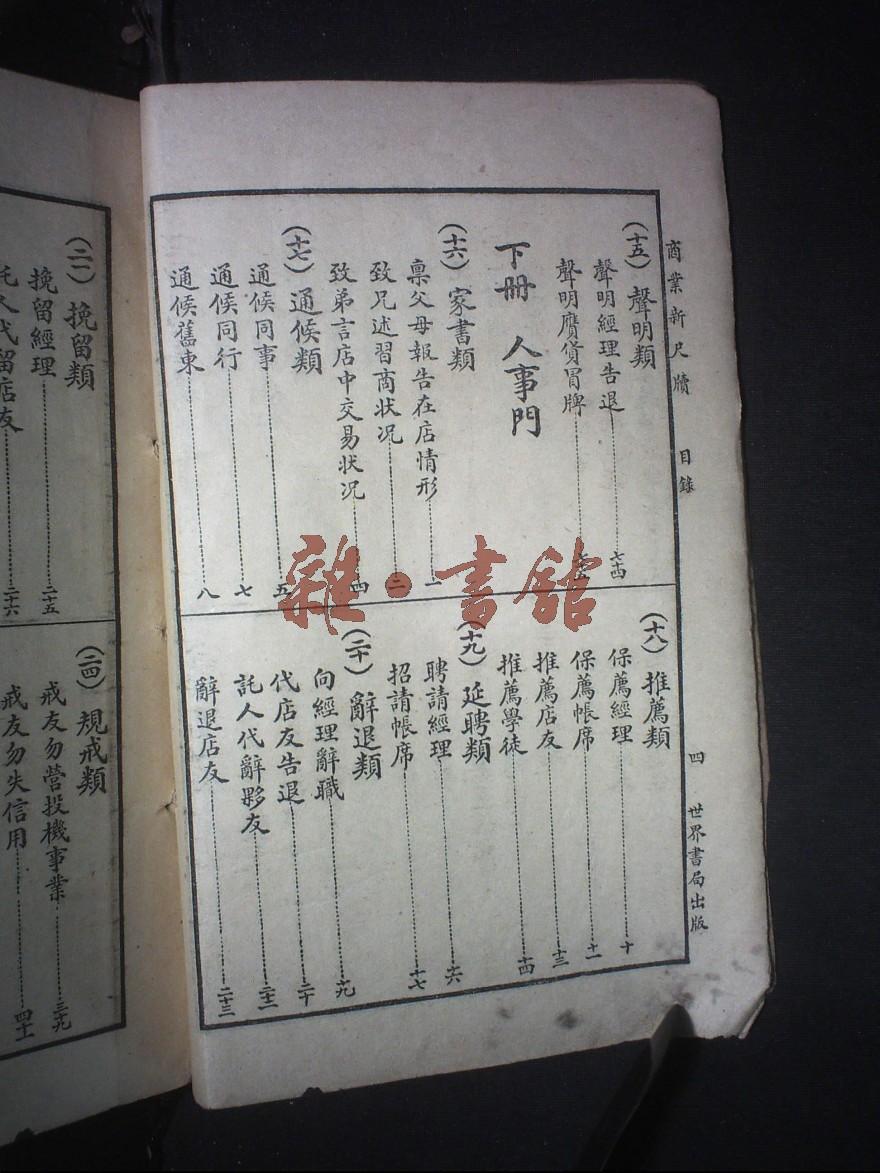 商業新尺牘 目錄 四 世界書局出版
(十五) 聲明類
聲明經理告退 七四
聲明贋貨冒牌
下冊 人事門
(十六) 家書類
禀父母報告在店情形 一
致兄述習商狀况 二
致弟言店中交易狀况 四
(十七) 通候類
通候同事 五
通候同行 七
通候舊東 八
(十八) 推薦類
保薦經理 十
保薦帳席 十一
推薦店友 十三
推薦學徒 十四
(十九) 延聘類
聘請經理 十六
招請帳席 十七
(二十) 辭退類
向經理辭職 十九
代店友告退 二十
託人代辭夥友 二十二
辭退店友 二十三
(二一) 挽留類
挽留經理 二十五
託人代留店友 二十六
(二四) 規戒類
戒友勿營投機事業 三十九
戒友勿失信用 四十一
雜·書館